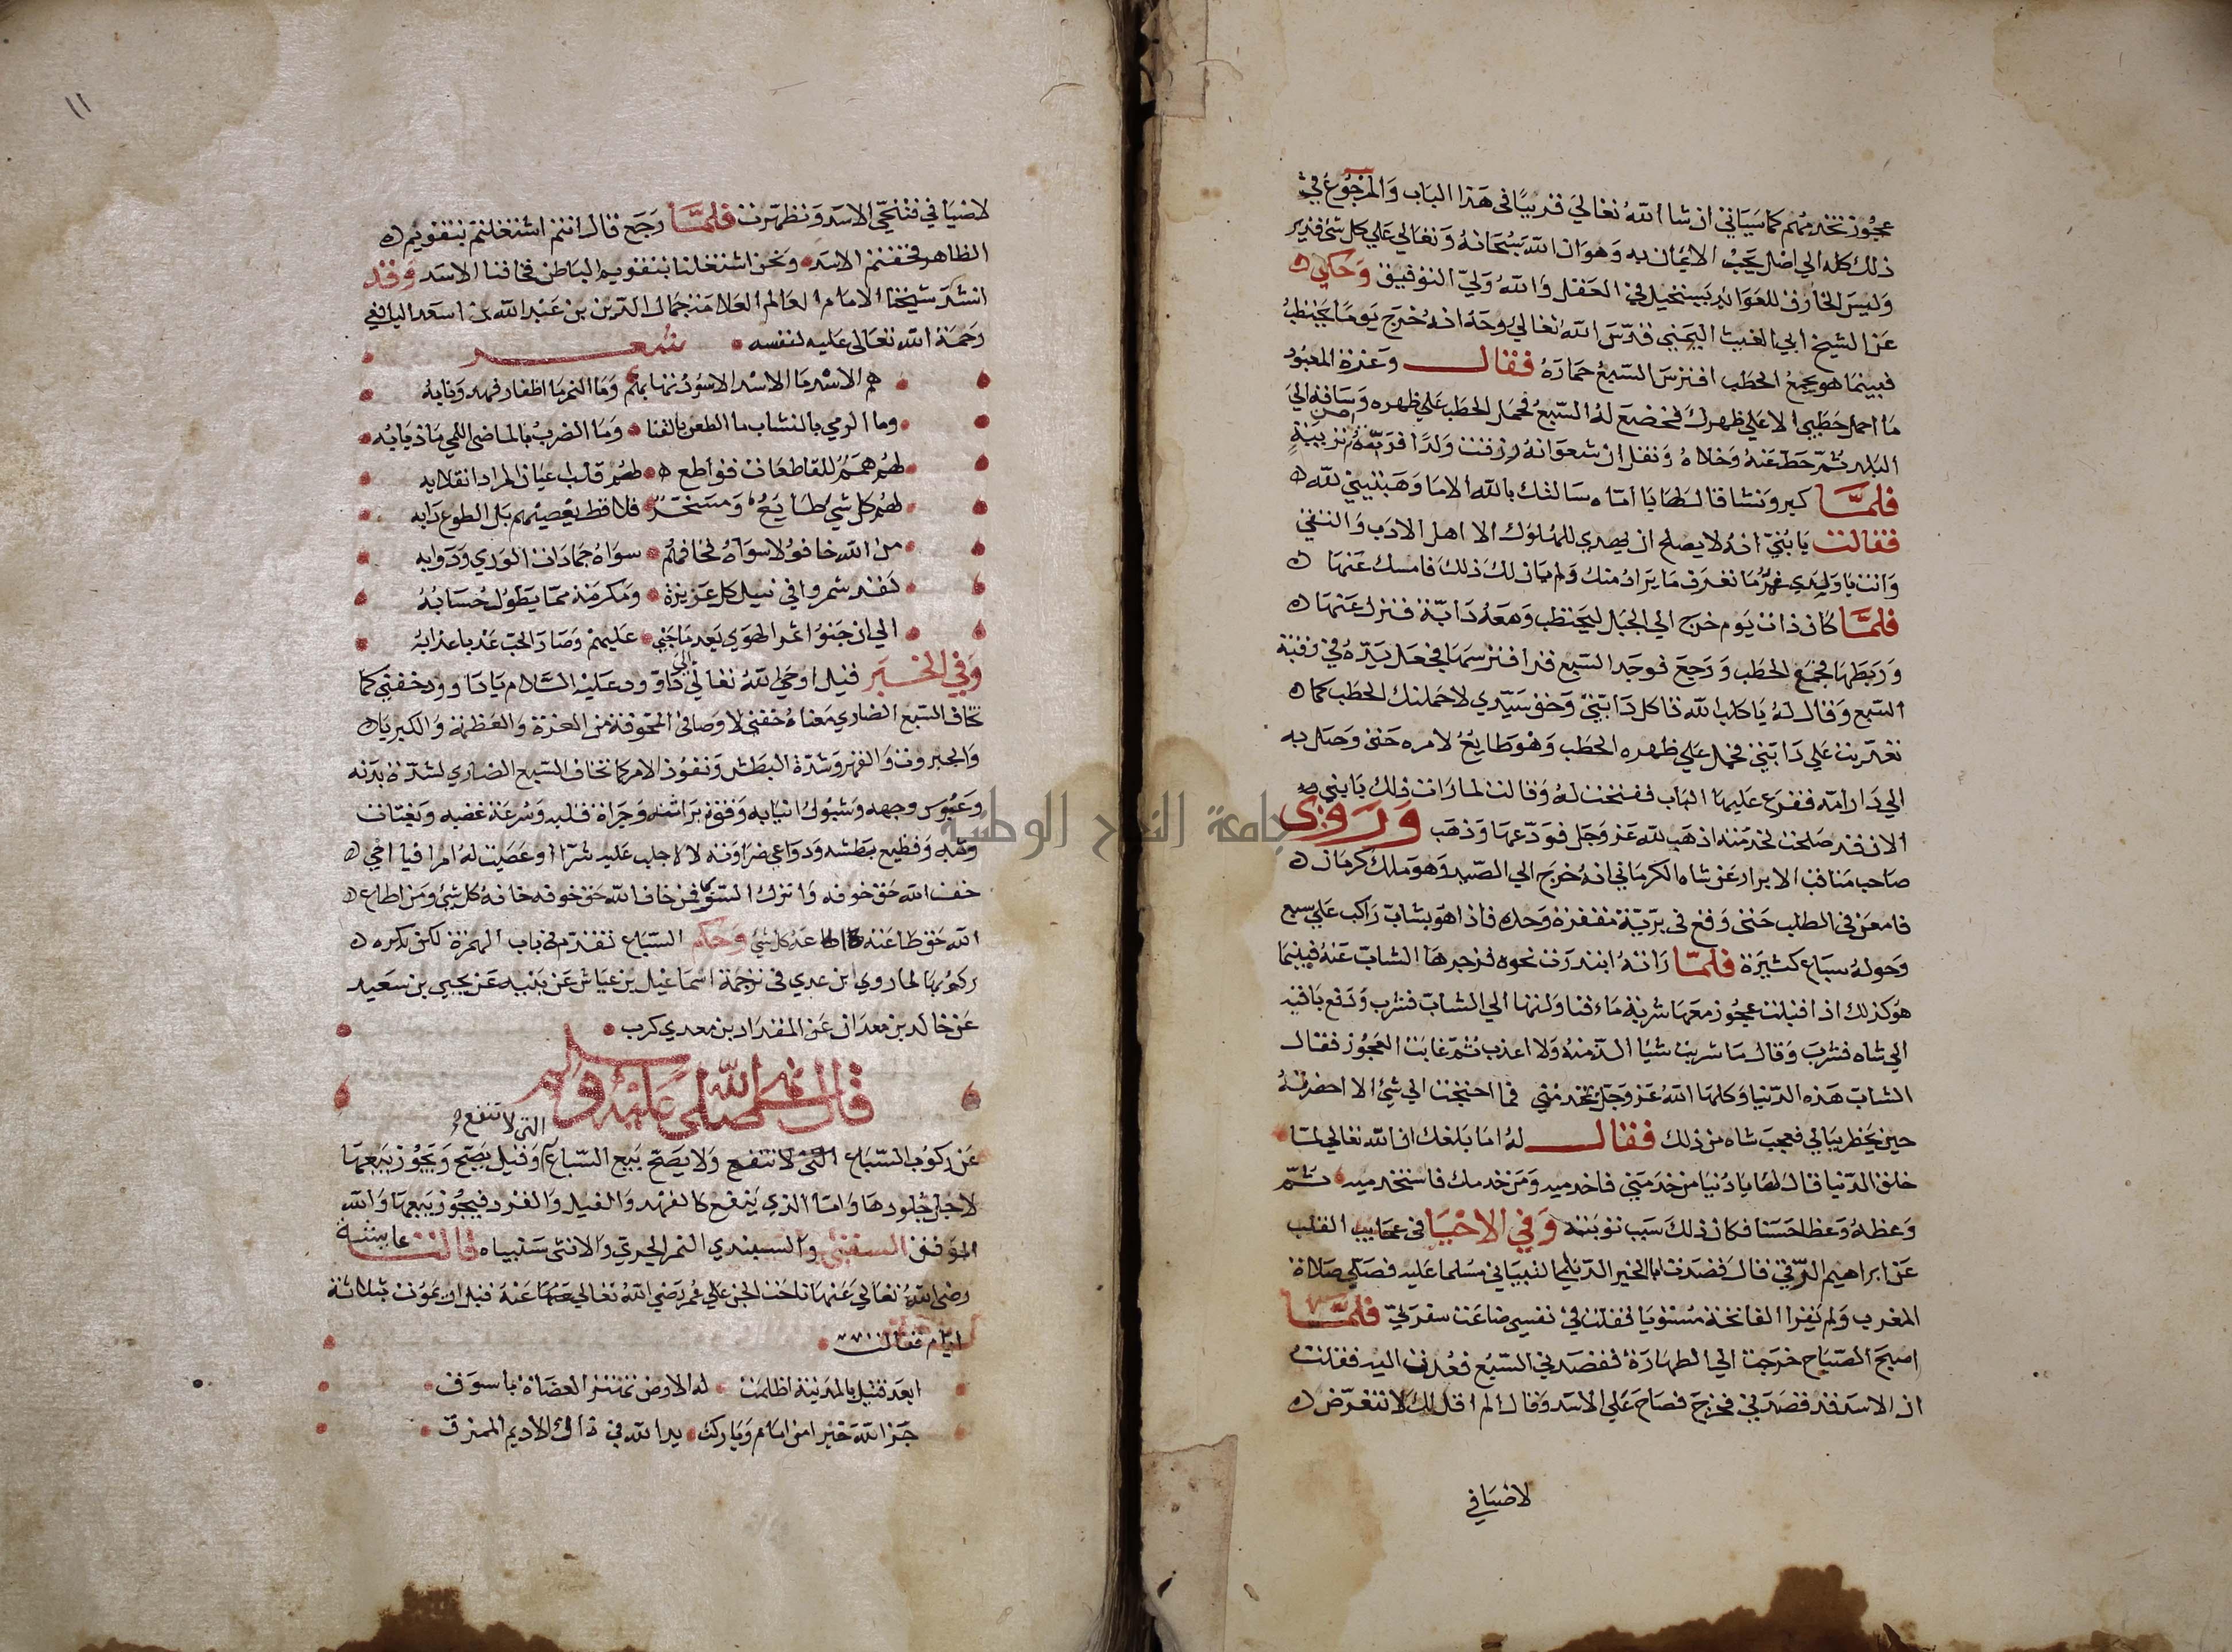 عجوز تخدمهم كما سياتي ان شا الله تعالي قريبا في هذا الباب والمرجوع في
ذلك كله الي اصل يجب الايمان به وهو ان الله سبحانه وتعالي علي كل شي قدير
وليس الخارق للعوايد بمستحيل في العقل والله ولي التوفيق وحكي
عن الشيخ ابي الغيث اليمني قدس الله تعالي روحه انه خرج يوما يحتطب
فبينما هو يجمع الحطب افترس السبع حماره فقال وعزة المعبود
ما احمل حطبي الا علي ظهرك فخضع له السبع فحمل الحطب علي ظهره وساقه الي
البلد ثم حط عنه وخلاه ونقل ان شعوانه رزقت ولدا فربته احسن تربية
فلما كبر ونشا قال لها يا اماه سالتك بالله الا ما وهبتيني لله
فقالت يا بني انه لا يصلح ان يهدي للملوك الا اهل الادب والتقي
وانت يا ولدي غمر ما تعرف ما يراد منك ولم يان لك ذلك فامسك عنها
فلما كان ذات يوم خرج الي الجبل ليحتطب ومعه دابة فنزل عنها
وربطها فجمع الحطب ورجع فوجد السبع قد افترسها فجعل يده في رقبة
السبع وقال له يا كلب الله تاكل دابتي وحق سيدي لاحملنك الحطب كما
تعديت علي دابتي فحمل علي ظهره الحطب وهو طايع لامره حتى وصل به
الي دار امه فقرع عليها الباب ففتحت له وقالت لما رات ذلك يا بني
الان قد صلحت لخدمته اذهب لله عز وجل فودعها وذهب وروى
صاحب مناقب الابرار عن شاه الكرماني انه خرج الي الصيد وهو ملك كرمان
فامعن في الطلب حتى وقع في برية مقفرة وحده فاذا هو بشاب راكب علي سبع
وحوله سباع كثيرة فلما راته ابتدرت نحوه فزجرها الشاب عنه فبينما
هو كذلك اذ اقبلت عجوز معها شربة ماء فناولتها الي الشاب فشرب ودفع باقيه
الي شاه فشرب وقال ما شربت شيا الذ منه ولا اعذب ثم غابت العجوز فقال
الشاب هذه الدنيا وكلها الله عز وجل بخدمتي فما احتجت الي شي الا احضرته
حين يخطر ببالي فعجب شاه من ذلك فقال له اما بلغك ان الله تعالي لما
خلق الدنيا قال لها يا دنيا من خدمني فاخدميه ومن خدمك فاستخدميه ثم
وعظه وعظا حسنا فكان ذلك سبب توبته وفي الاحيا في عجايب القلب
عن ابراهيم الرقي قال قصدت ابا الخير الديلمي التيناتي مسلما عليه فصلي صلاة
المغرب ولم يقرا الفاتحة مستويا فقلت في نفسي ضاعت سفرتي فلما
اصبح الصباح خرجت الي الطهارة فقصدني السبع فعدت اليه فقلت
ان الاسد قد قصدني فخرج فصاح علي الاسد وقال الم اقل لك لا تتعرض
لاضيافي
١١
لاضيافي فتنحي الاسد وتطهرت فلما رجع قال انتم اشتغلتم بتقويم
الظاهر فخفتم الاسد ونحن اشتغلنا بتقويم الباطن فخافنا الاسد وقد
انشد شيخنا الامام العالم العلامة جمال الدين بن عبد الله بن اسعد اليافعي
رحمة الله تعالى عليه لنفسه شعر
هم الاسد ما الاسد الاسود تهابهم وما النمر ما اظفار فهد ونابه
وما الرمي بالنشاب ما الطعن بالقنا وما الضرب بالماضي الكمي ماذبابه
لهم همم للقاطعات قواطع لهم قلب عيان المراد انقلابه
لهم كل شي طايع ومسخر فلا قط يعصيهم بل الطوع دابه
من الله خافوا لا سواه فخافهم سواه جمادات الوري ودوابه
لقد شمروا في نيل كل عزيزة ومكرمة مما يطول حسابه
الي ان جنوا ثمر الهوي بعد ما جني عليهم وصار الحب عذبا عذابه
وفي الخبر قيل اوحي الله تعالي الى داوود عليه السلام يا داوود خفني كما
تخاف السبع الضاري معناه خفني لاوصافي المخوفة من العزة والعظمة والكبريا
والجبروت والقهر وشدة البطش ونفوذ الامر كما تخاف السبع الضاري لشدة بدنه
وعبوس وجهه وشبوك انيابه وقوة براثنه وجراة قلبه وسرعة غضبه وبغتات
وثبه وفظيع بطشه ودواعي ضراوته لا لاجلب عليه شرا او عصيت له امرا فيا اخي
خف الله حق خوفه واترك السوي فمن خاف الله حق خوفه خافه كل شي ومن اطاع
الله حق طاعته اطاعه كل شي وحكم السباع تقدم في باب الهمزة لكن يكره
ركوبها لما روي ابن عدي في ترجمة اسماعيل بن عياش عن بقيه عن يحيى بن سعيد
عن خالد بن معدان عن المقداد بن معدي كرب
قال نهى صلى الله عليه وسلم
التى لا تنفع
عن ركوب السباع التى لا تنتفع ولا يصح بيع السباع وقيل يصح ويجوز بيعها
لاجل جلودها واما الذي ينفع كالفهد والفيل والقرد فيجوز بيعها والله
الموفق السبنتي والسبندي النمر الجري والانثى سبنياه قالت عايشة
رضي الله تعالي عنها ناحت الجن علي عمر رضي الله تعالي عنه قبل ان يموت بثلاثة
ايام فقالت
ابعد قتيل بالمدينة اظلمت له الارض تهتز العضاة باسوق
جزا الله خيرا من امام وباركت يد الله في ذاك الاديم الممزق
جامعة النجاح الوطنية